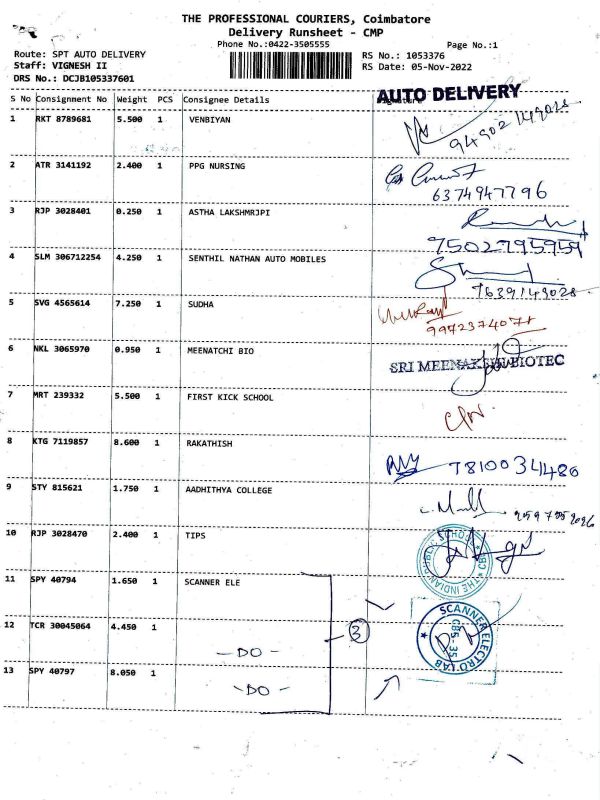 THE PROFESSIONAL COURIERS, Coimbatore
Delivery Runsheet - CMP
Phone No.:0422-3505555 Page No.:1
Route: SPT AUTO DELIVERY RS No.: 1053376
Staff: VIGNESH II RS Date: 05-Nov-2022
DRS No.: DCJB105337601
AUTO DELIVERY
S No Consignment No Weight PCS Consignee Details
1 RKT 8789681 5.500 1 VENBIYAN
2 ATR 3141192 2.400 1 PPG NURSING
6374947796
3 RJP 3028401 0.250 1 ASTHA LAKSHMRJPI
7502795959
4 SLM 306712254 4.250 1 SENTHIL NATHAN AUTO MOBILES
7639149028
5 SVG 4565614 7.250 1 SUDHA
6 NKL 3065970 0.950 1 MEENATCHI BIO
SRI MEENAKSHI BIOTEC
7 MRT 239332 5.500 1 FIRST KICK SCHOOL
8 KTG 7119857 8.600 1 RAKATHISH 7810034480
9 STY 815621 1.750 1 AADHITHYA COLLEGE
10 RJP 3028470 2.400 1 TIPS
THE INDIAN PUBLIC SCHOOL CBE
11 SPY 40794 1.650 1 SCANNER ELE
12 TCR 30045064 4.450 1 3
-DO-
SCANNER ELECTRO LAB
CBS. 35
13 SPY 40797 8.050 1 -DO-